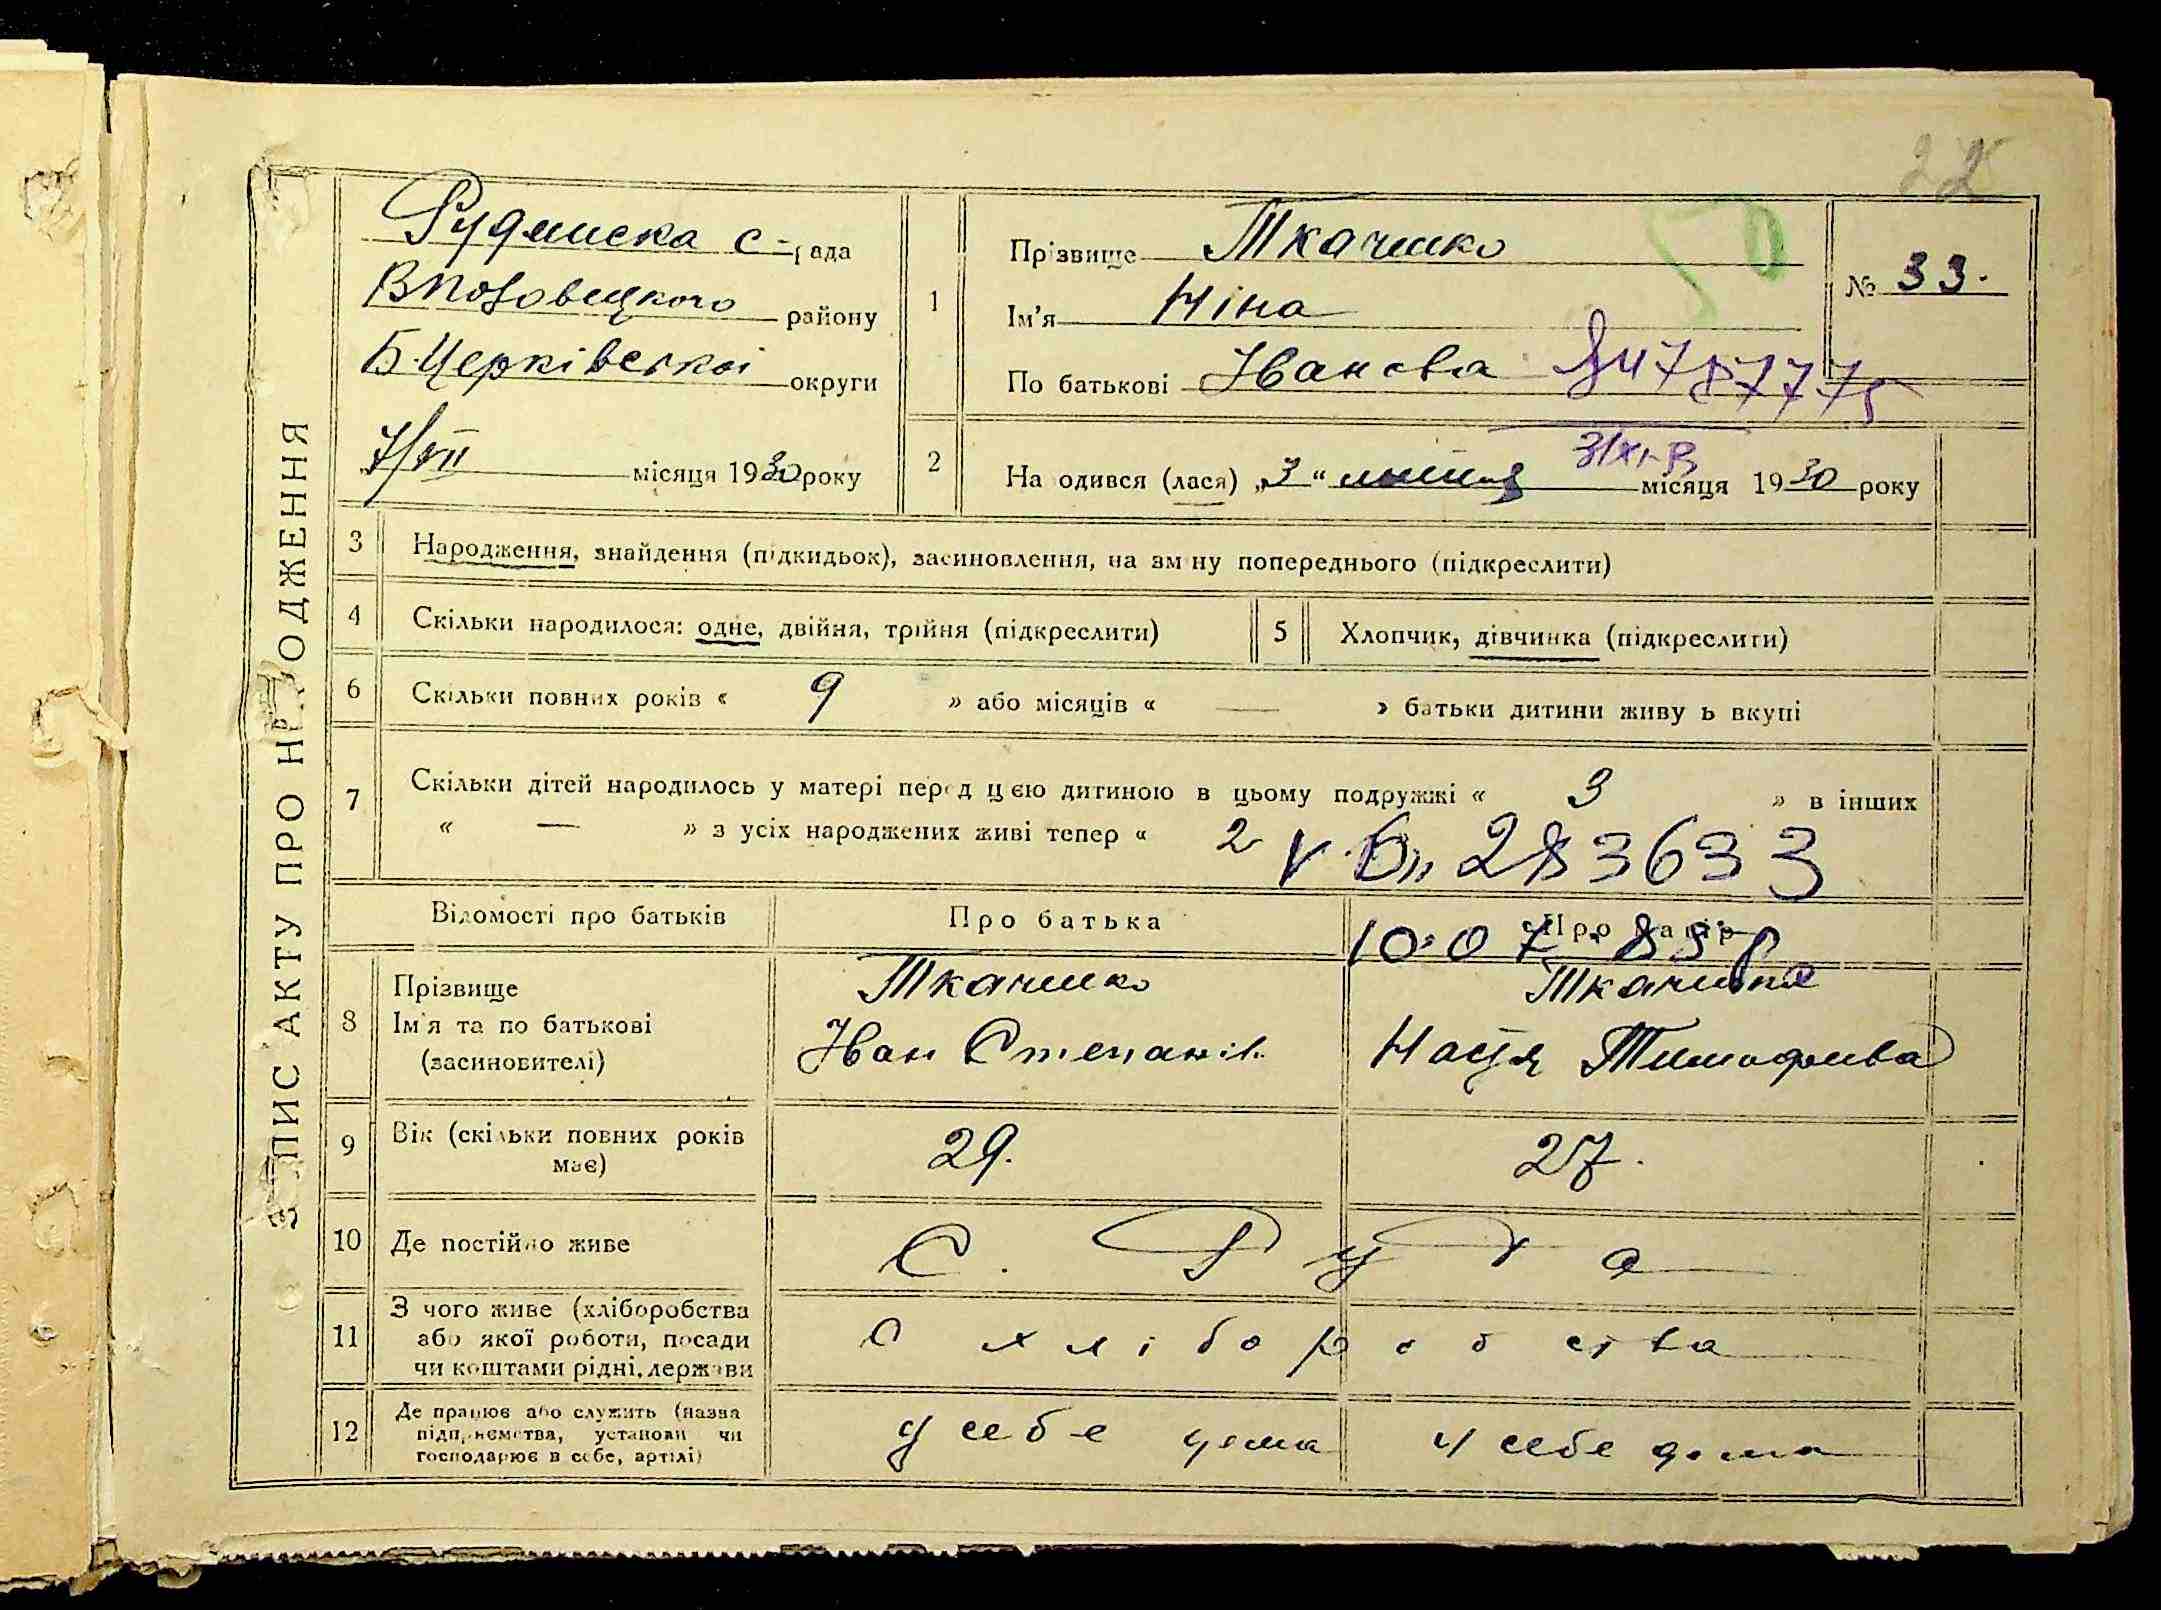 22
ЗАПИС АКТУ ПРО НАРОДЖЕННЯ
с-рада
району
Б.Церківської округи
7/VII місяця 1930 року
1
Прізвище Ткаченко
Ім'я Ніна
По батькові Іванова
50
№ 33.
2
На одився (лася) „3“ липня місяця 1930 року
3 Народження, знайдення (підкидьок), засиновлення, на зміну попереднього (підкреслити)
4 Скільки народилося: одне, двійня, трійня (підкреслити)
5 Хлопчик, дівчинка (підкреслити)
6 Скільки повних років « 9 » або місяців « — » батьки дитини живуть вкупі
7 Скільки дітей народилось у матері перед цією дитиною в цьому подружжі « 3 » в інших
« — » з усіх народжених живі тепер « 2
283633
Відомості про батьків
Про батька
Про матір
10.07.85р
8
Прізвище
Ім'я та по батькові
(засиновителі)
Ткаченко
Іван Степанів
Ткаченко
Настя Тимофієва
9 Вік (скільки повних років має)
29.
27.
10 Де постійно живе
С. Руда
11 З чого живе (хліборобства
або якої роботи, посади
чи коштами рідні, держави
С хліборобства
12 Де працює або служить (назва
підприємства, установи чи
господарює в себе, артілі)
у себе дома
у себе дома